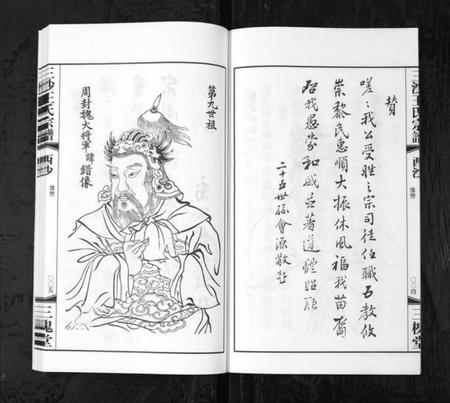 三沙王氏宗譜
西沙
像贊
〇〇四
三槐堂
贊
嗟嗟我公受姓之宗司徒任職五教攸
崇黎民惠順大振休風福我苗裔
啟我愚蒙和
二十五世孫會源敬
第九世祖
周封魏大將軍諱錯像
三沙王氏宗譜
西沙
像贊
〇〇五
三槐堂